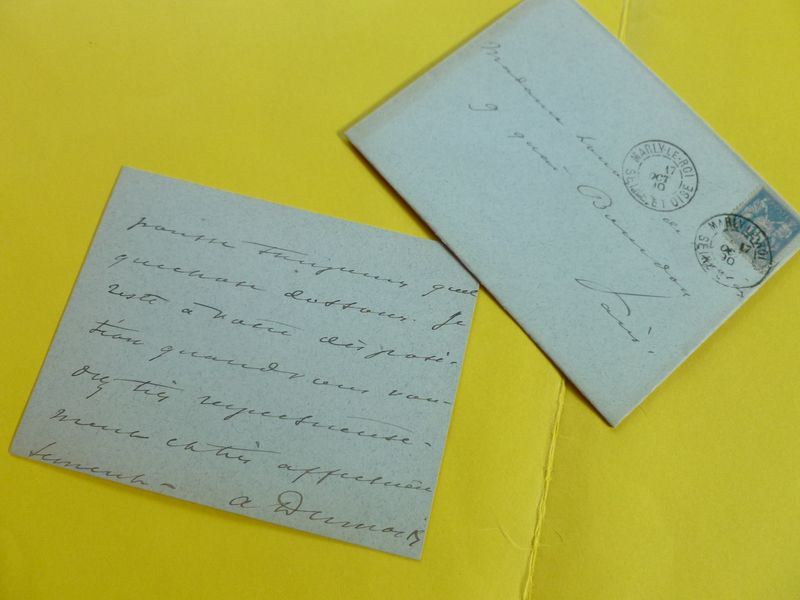 pousse toujours quel
quechose dessous. Je
reste à votre disposi-
tion quand vous vou-
très respectueuse-
ment et très affection
A Dumas
Madame
9 quai Bourbon
Paris-
MARLY-LE-ROI
17
OCT
SEINE ET OISE
MARLY-LE-ROI
17